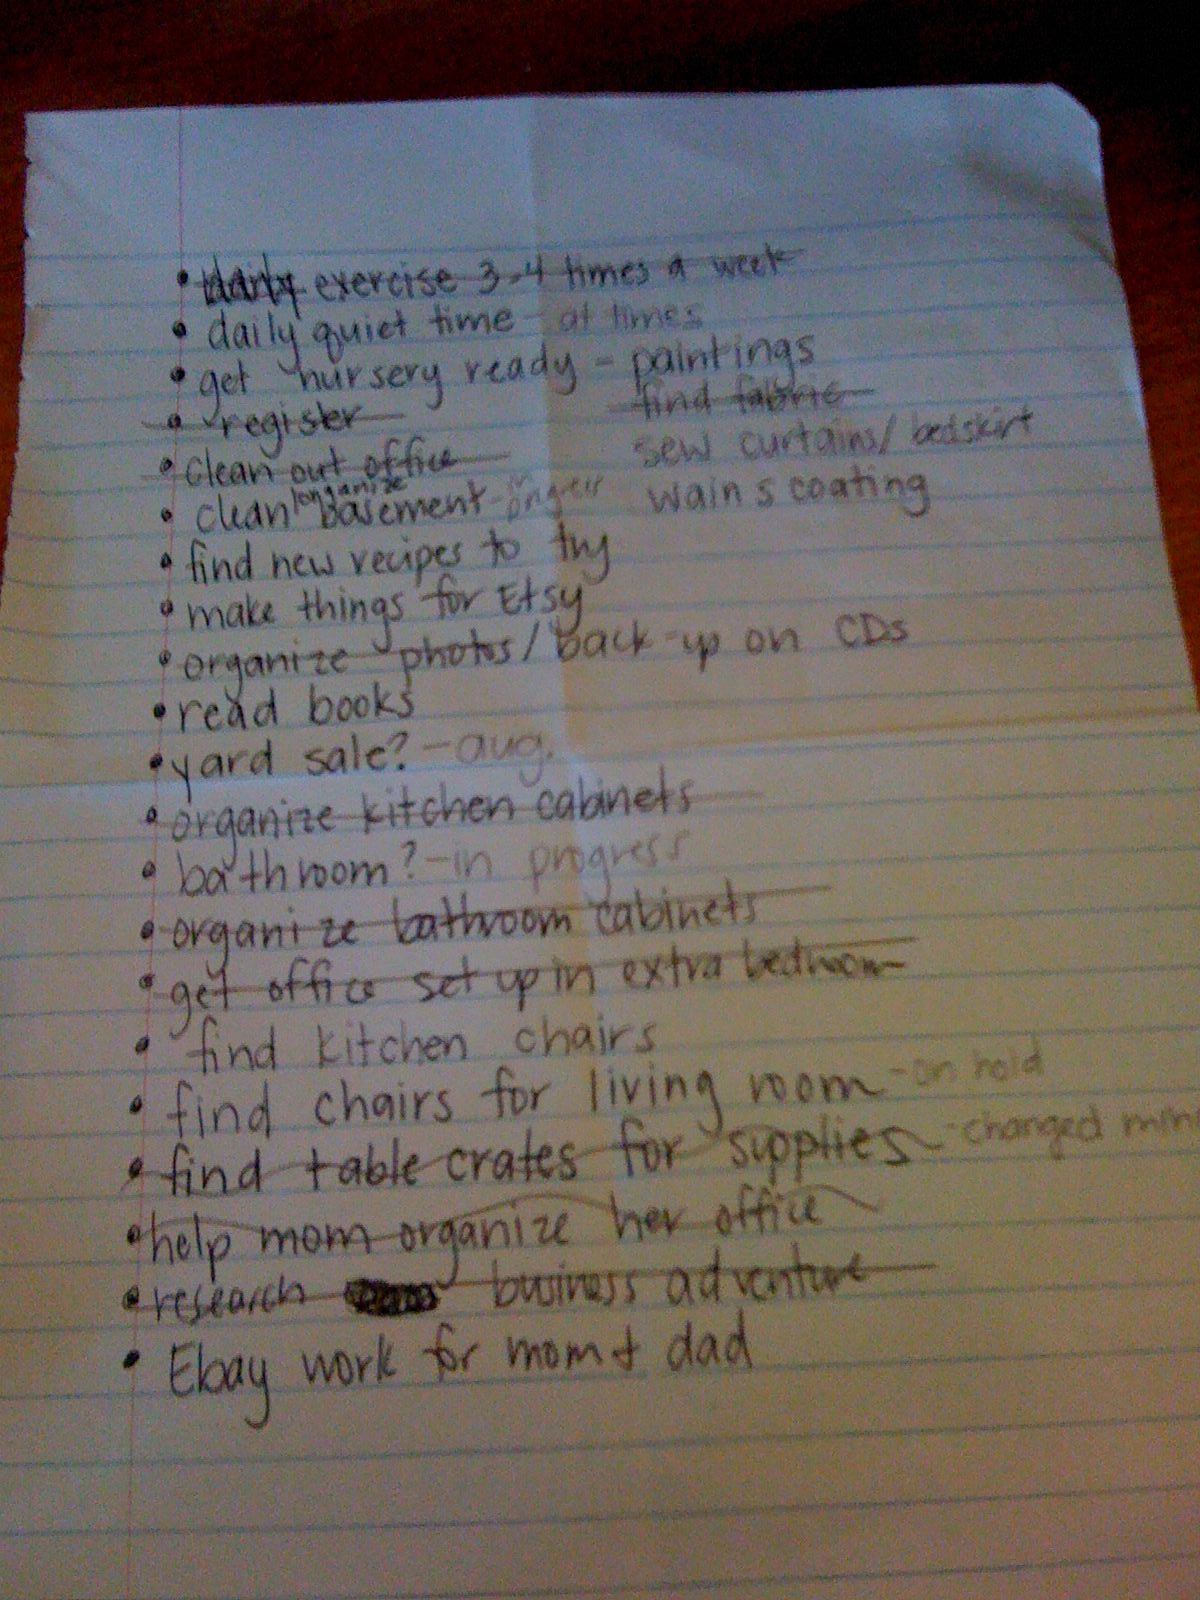 • daily exercise 3-4 times a week
• daily quiet time - at times
• get nursery ready - paintings
find fabric
• register
sew curtains/bedskirt
• clean out office
wainscoating
• clean/organize basement -
• find new recipes to try
• make things for Etsy
• organize photos/back-up on CDs
• read books
• yard sale? - aug.
• organize kitchen cabinets
• bathroom? - in progress
• organize bathroom cabinets
• get office set up in extra bedroom
• find kitchen chairs
• find chairs for living room - on hold
• find table crates for supplies - changed min
• help mom organize her office
• research business adventure
• Ebay work for mom + dad